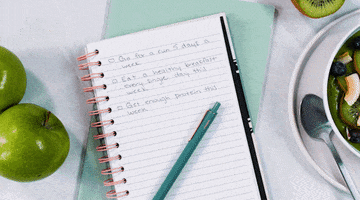 □ Go for a run 3 days a
week
□ Eat a healthy breakfast
every single day this
week
□ Get enough protein this
week